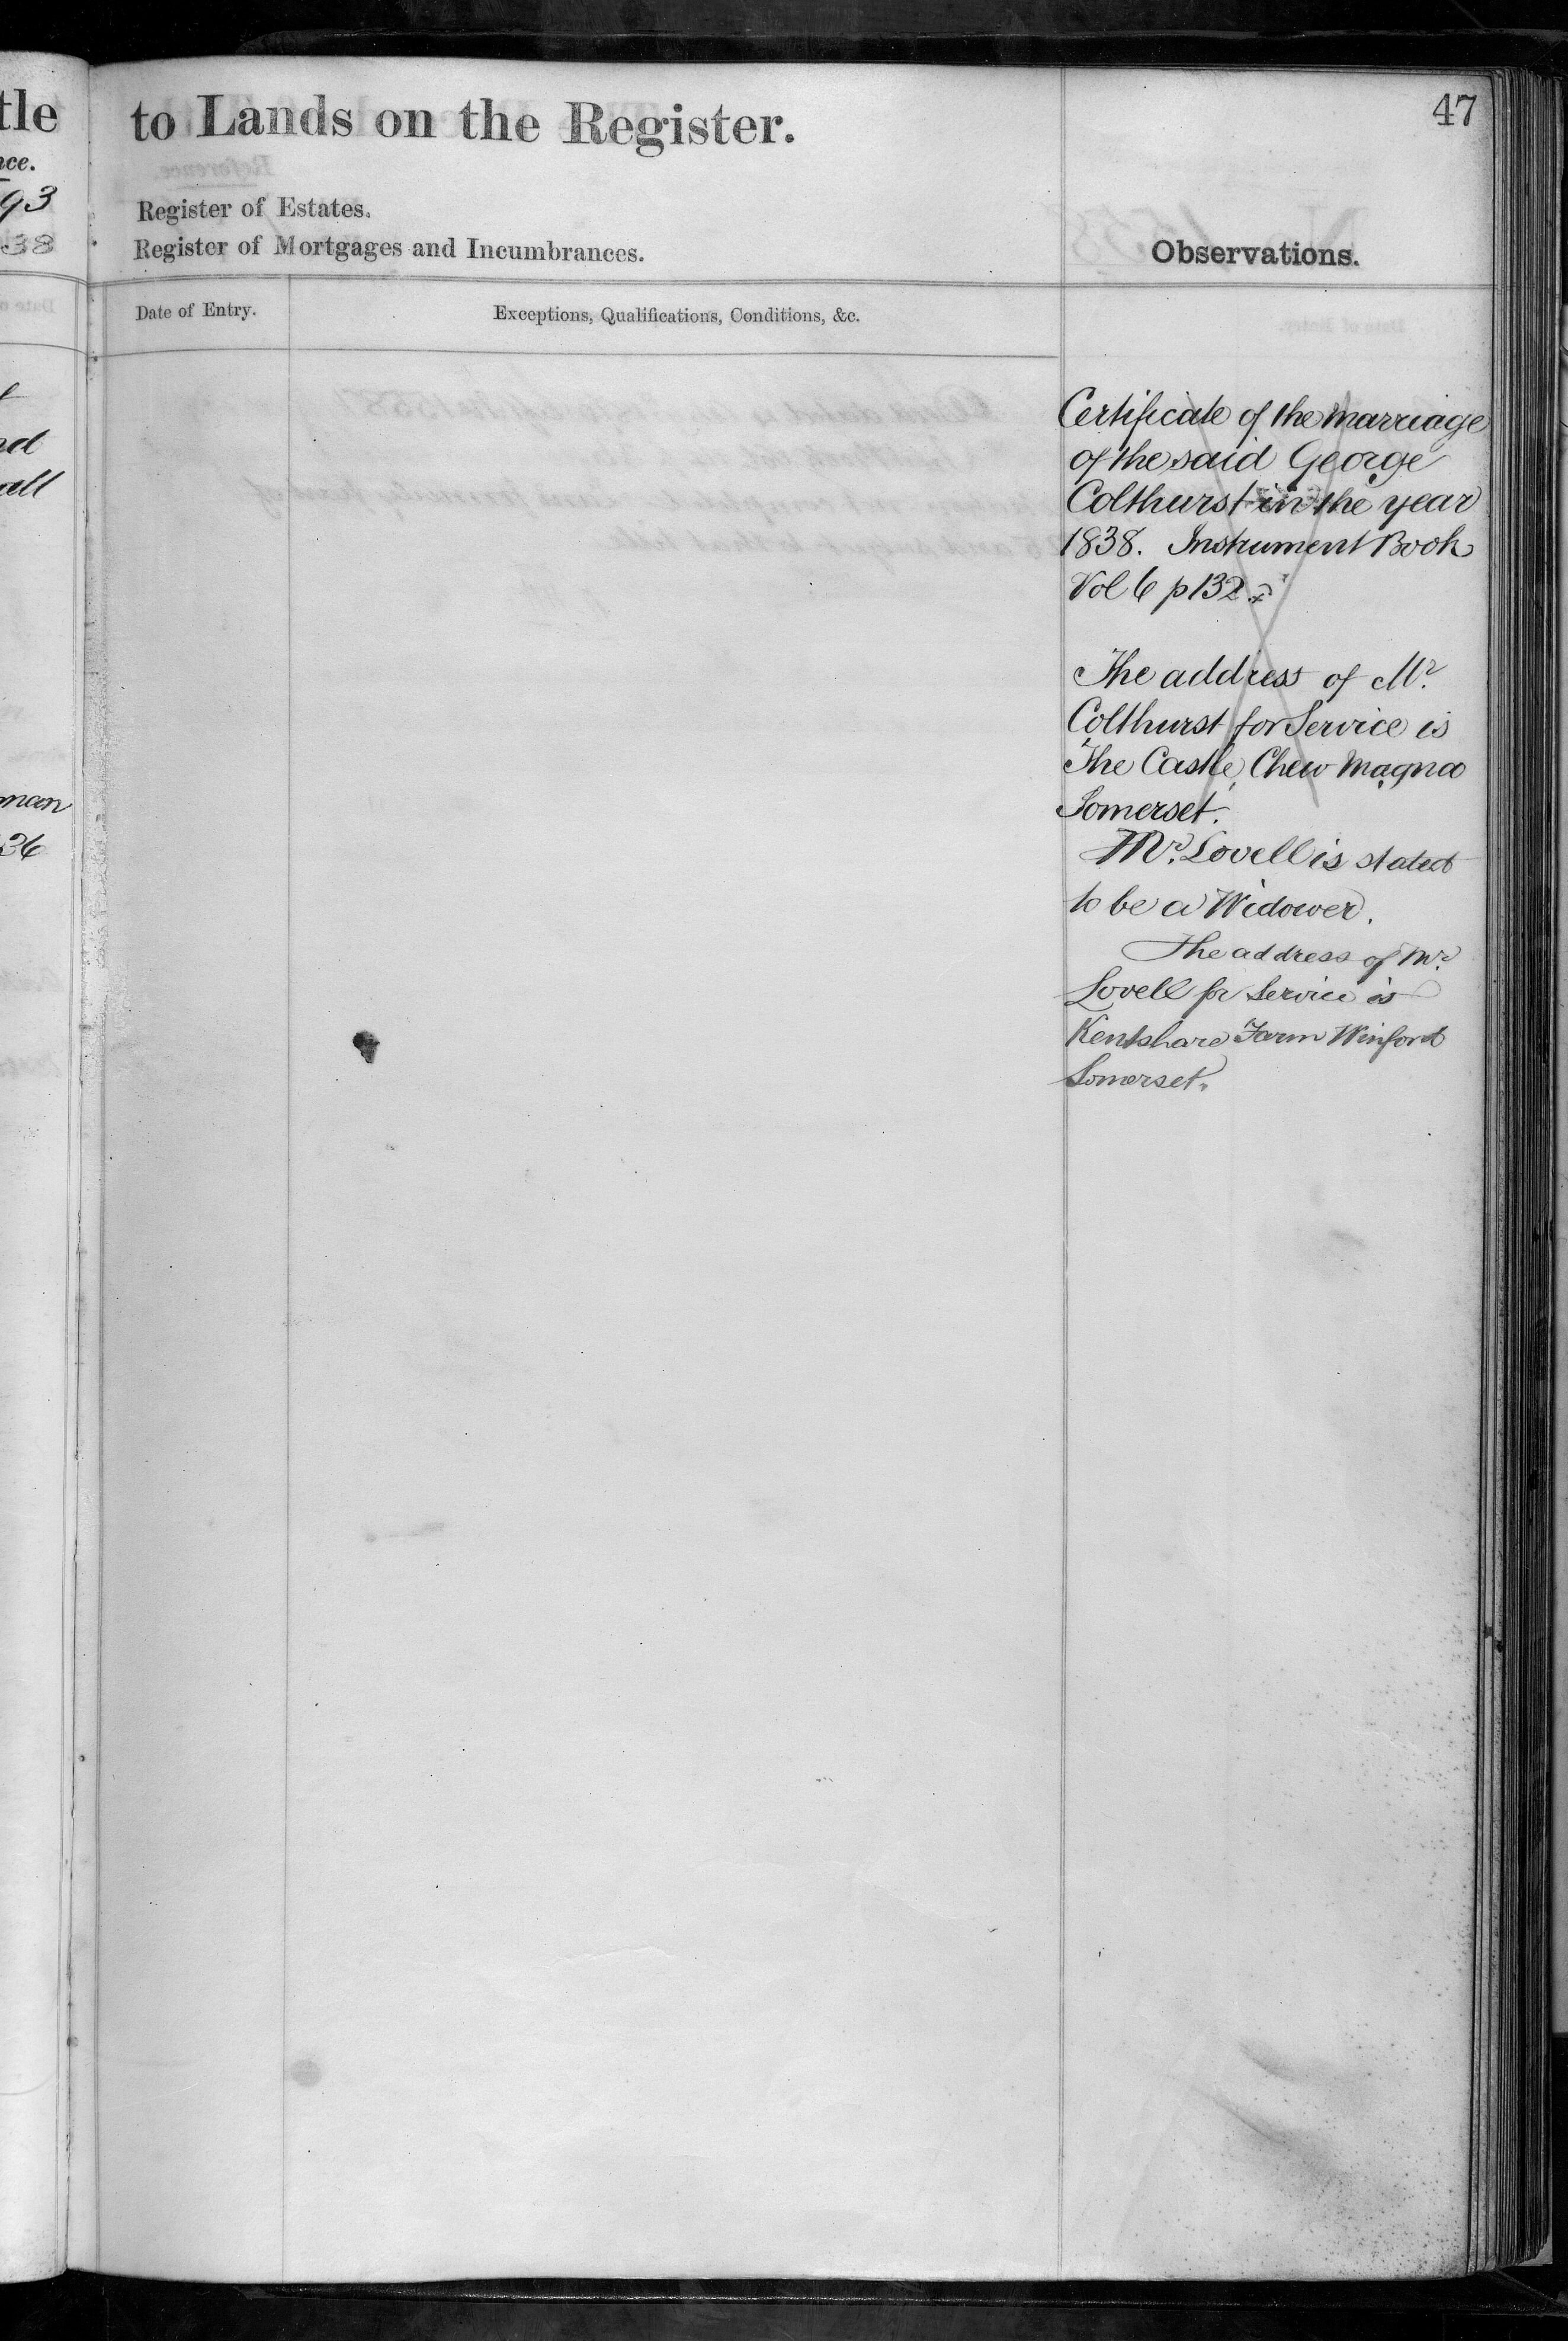 47
to Lands on the Register.
Register of Estates.
Register of Mortgages and Incumbrances.
Observations.
Date of Entry.
Exceptions, Qualifications, Conditions, &c.
Certificate of the marriage
of the said George
Colthurst in the year
1838. Instrument Book
Vol 6 p 132.
The address of Mr.
Colthurst for Service is
The Castle, Chew Magna
Somerset.
Mr. Lovell is stated
to be a Widower.
The address of Mr.
Lovell for Service is
Kentshare Farm Winford
Somerset.
tle
nce.
93
38
nd
all
man
36